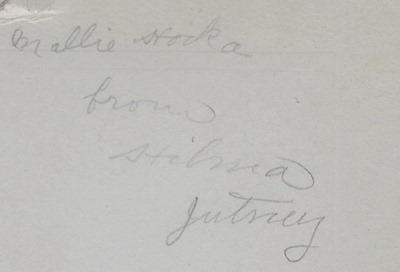 Mallie Hoika
from
Hilma
Jutney